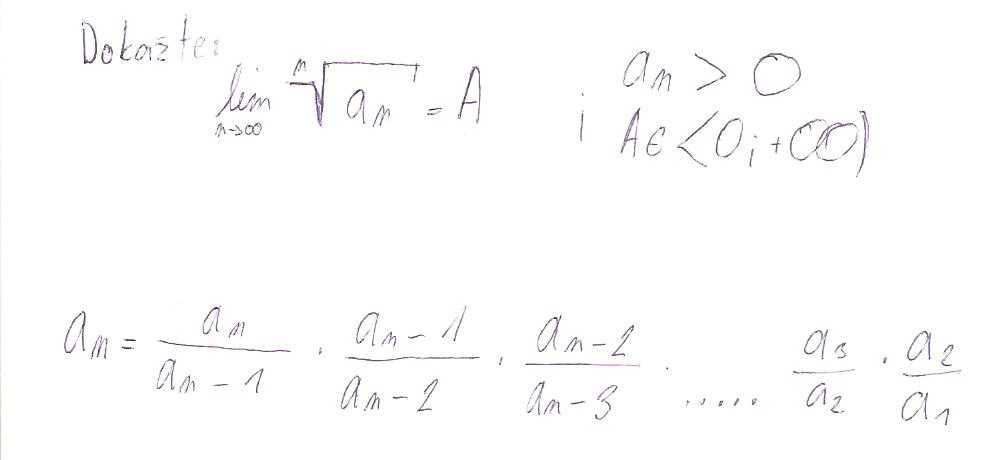 Dokažte:
lim n→∞ ⁿ√aₙ = A ; aₙ > 0
A∈<0;+∞)
aₙ = aₙ/aₙ₋₁ · aₙ₋₁/aₙ₋₂ · aₙ₋₂/aₙ₋₃ · ..... a₃/a₂ · a₂/a₁